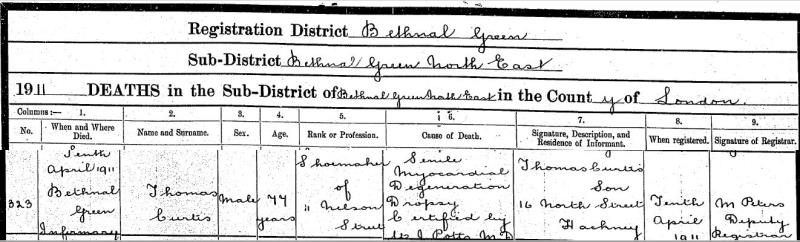 Registration District Bethnal Green
Sub-District Bethnal Green North East
1911 DEATHS in the Sub-District of Bethnal Green North East in the County of London.
Columns:— 1. 2. 3. 4. 5. 6. 7. 8. 9.
No. When and Where Died. Name and Surname. Sex. Age. Rank or Profession. Cause of Death. Signature, Description, and Residence of Informant. When registered. Signature of Registrar.
323
Tenth
April 1911
Bethnal
Green
Infirmary
Thomas
Curtis
Male
77
years
Shoemaker
of
11 Nelson
Street
Senile
Myocardial
Degeneration
Dropsy
Certified by
J Potts M D
Thomas Curtis
Son
16 North Street
Hackney
Tenth
April
1911
M Peters
Deputy
Registrar